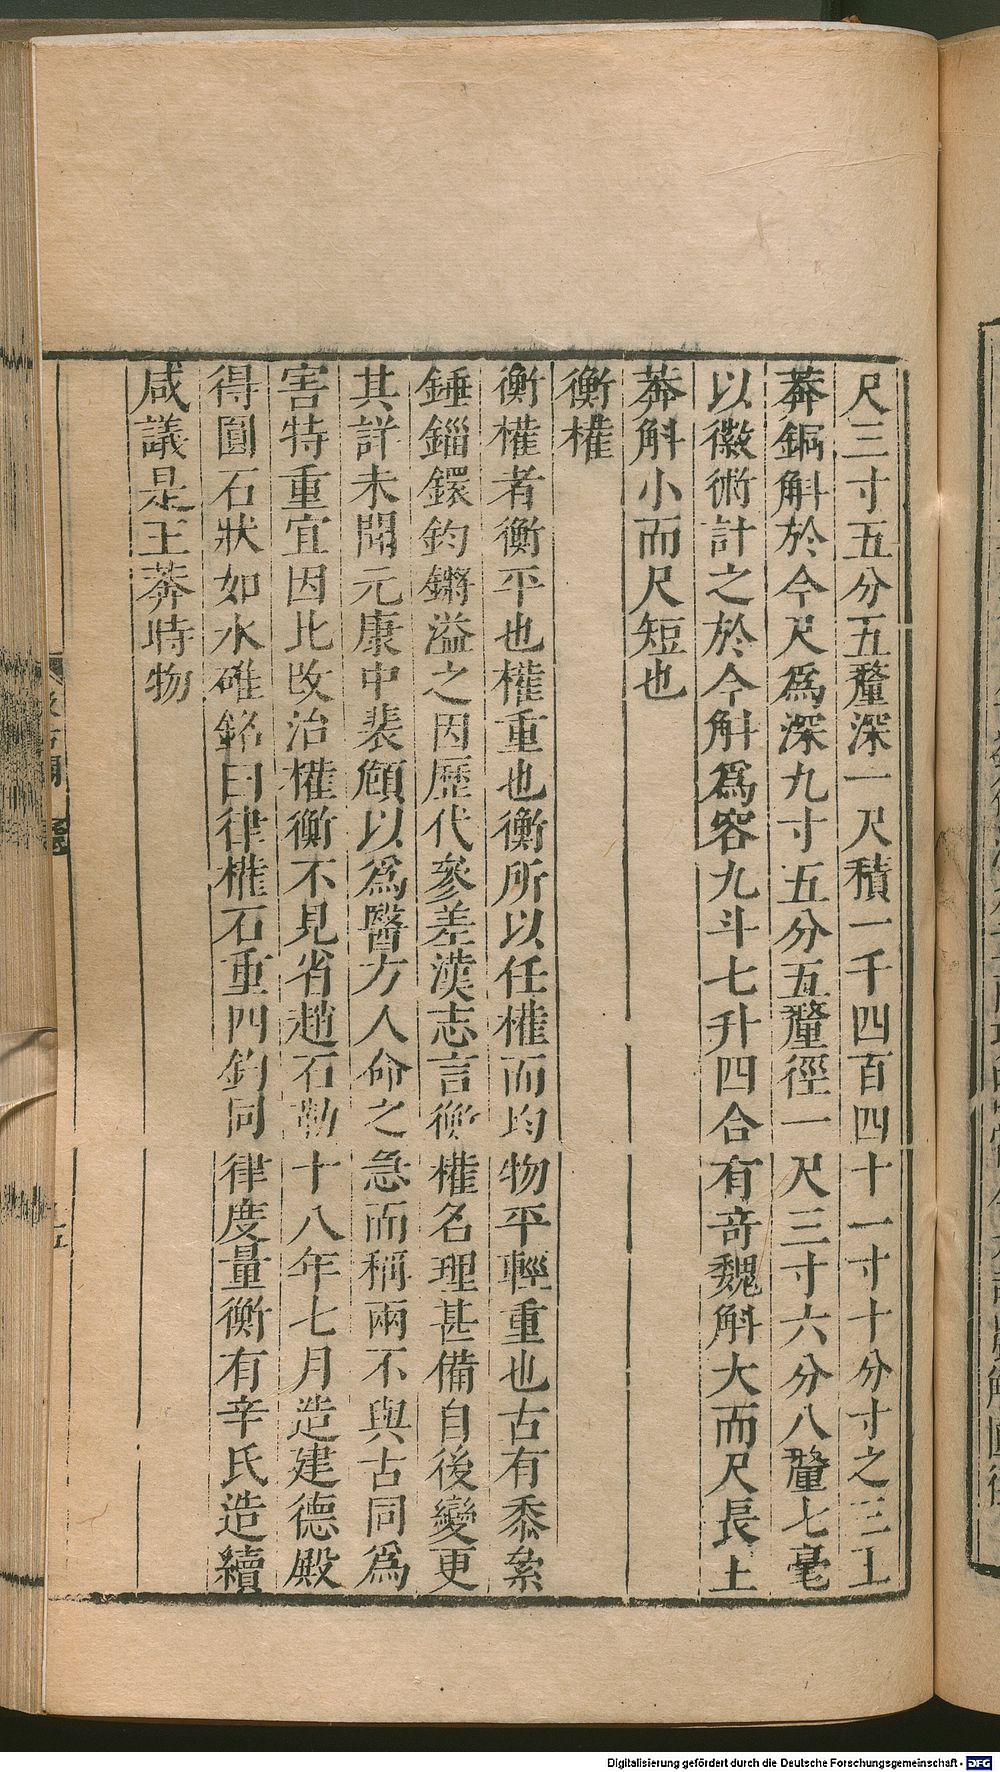 尺三寸五分五釐深一尺積一千四百四十一寸十分寸之三王
莽銅斛於今尺爲深九寸五分五釐徑一尺三寸六分八釐七毫
以徽術計之於今斛爲容九斗七升四合有奇魏斛大而尺長王
莽斛小而尺短也
衡權
衡權者衡平也權重也衡所以任權而均物平輕重也古有黍絫
錘錙鐶鈞鏘溢之因歷代參差漢志言衡權名理甚備自後變更
其詳未聞元康中裴頠以爲醫方人命之急而稱兩不與古同爲
害特重宜因此改治權衡不見省趙石勒十八年七月造建德殿
得圓石狀如水碓銘曰律權石重四鈞同律度量衡有辛氏造續
咸議是王莽時物
Digitalisierung gefördert durch die Deutsche Forschungsgemeinschaft - DFG